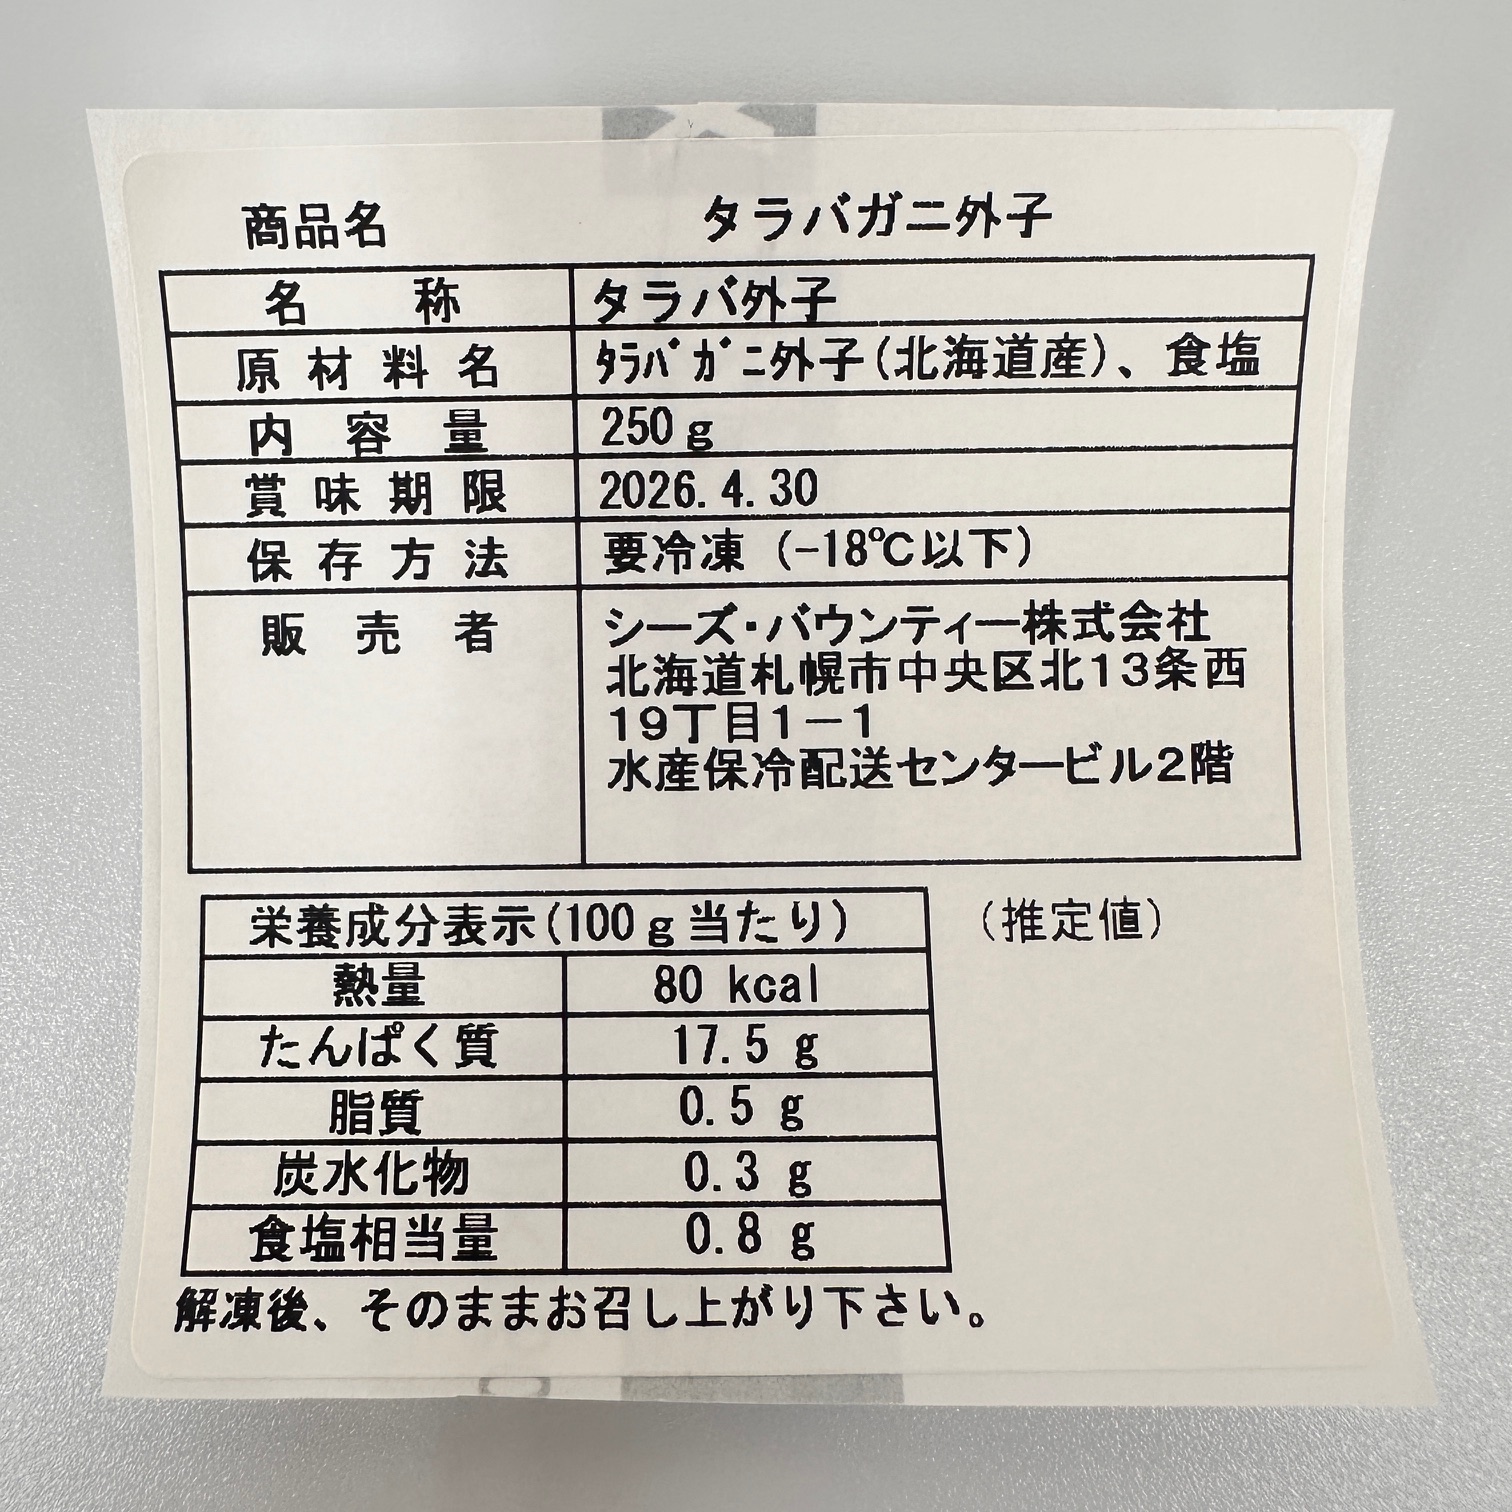 商品名 タラバガニ外子
名称 タラバ外子
原材料名 ﾀﾗﾊﾞｶﾞﾆ外子(北海道産)、食塩
内容量 250g
賞味期限 2026.4.30
保存方法 要冷凍 (-18℃以下)
販売者 シーズ・バウンティー株式会社
北海道札幌市中央区北13条西
19丁目1－1
水産保冷配送センタービル2階
栄養成分表示(100g当たり) (推定値)
熱量 80 kcal
たんぱく質 17.5 g
脂質 0.5 g
炭水化物 0.3 g
食塩相当量 0.8 g
解凍後、そのままお召し上がり下さい。